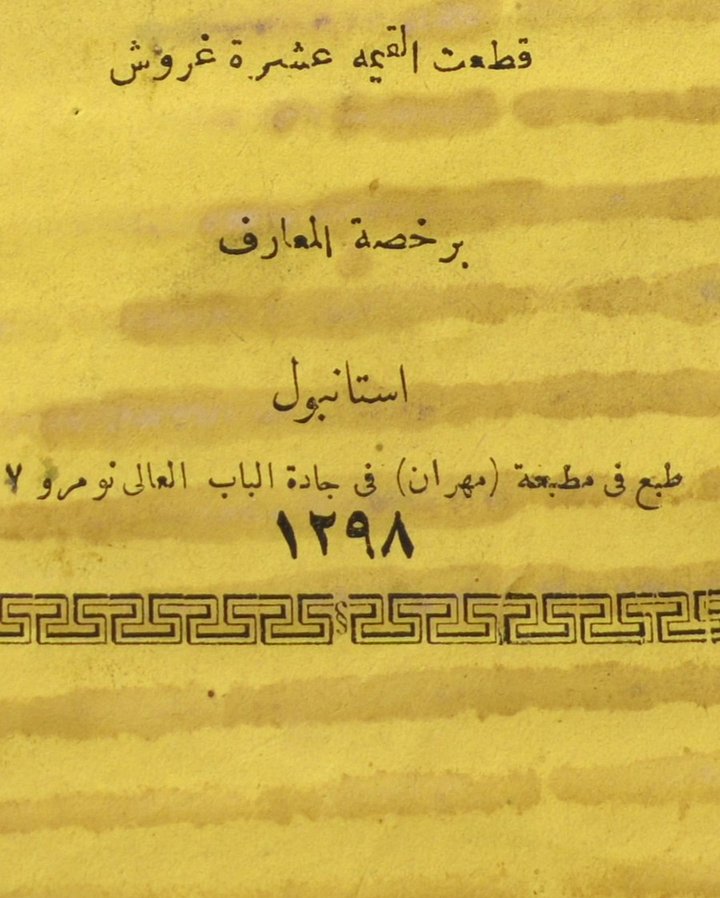 قطعت القيمه عشرة غروش
برخصة المعارف
استانبول
طبع فى مطبعة (مهران) فى جادة الباب العالى نومرو ٧
١٢٩٨